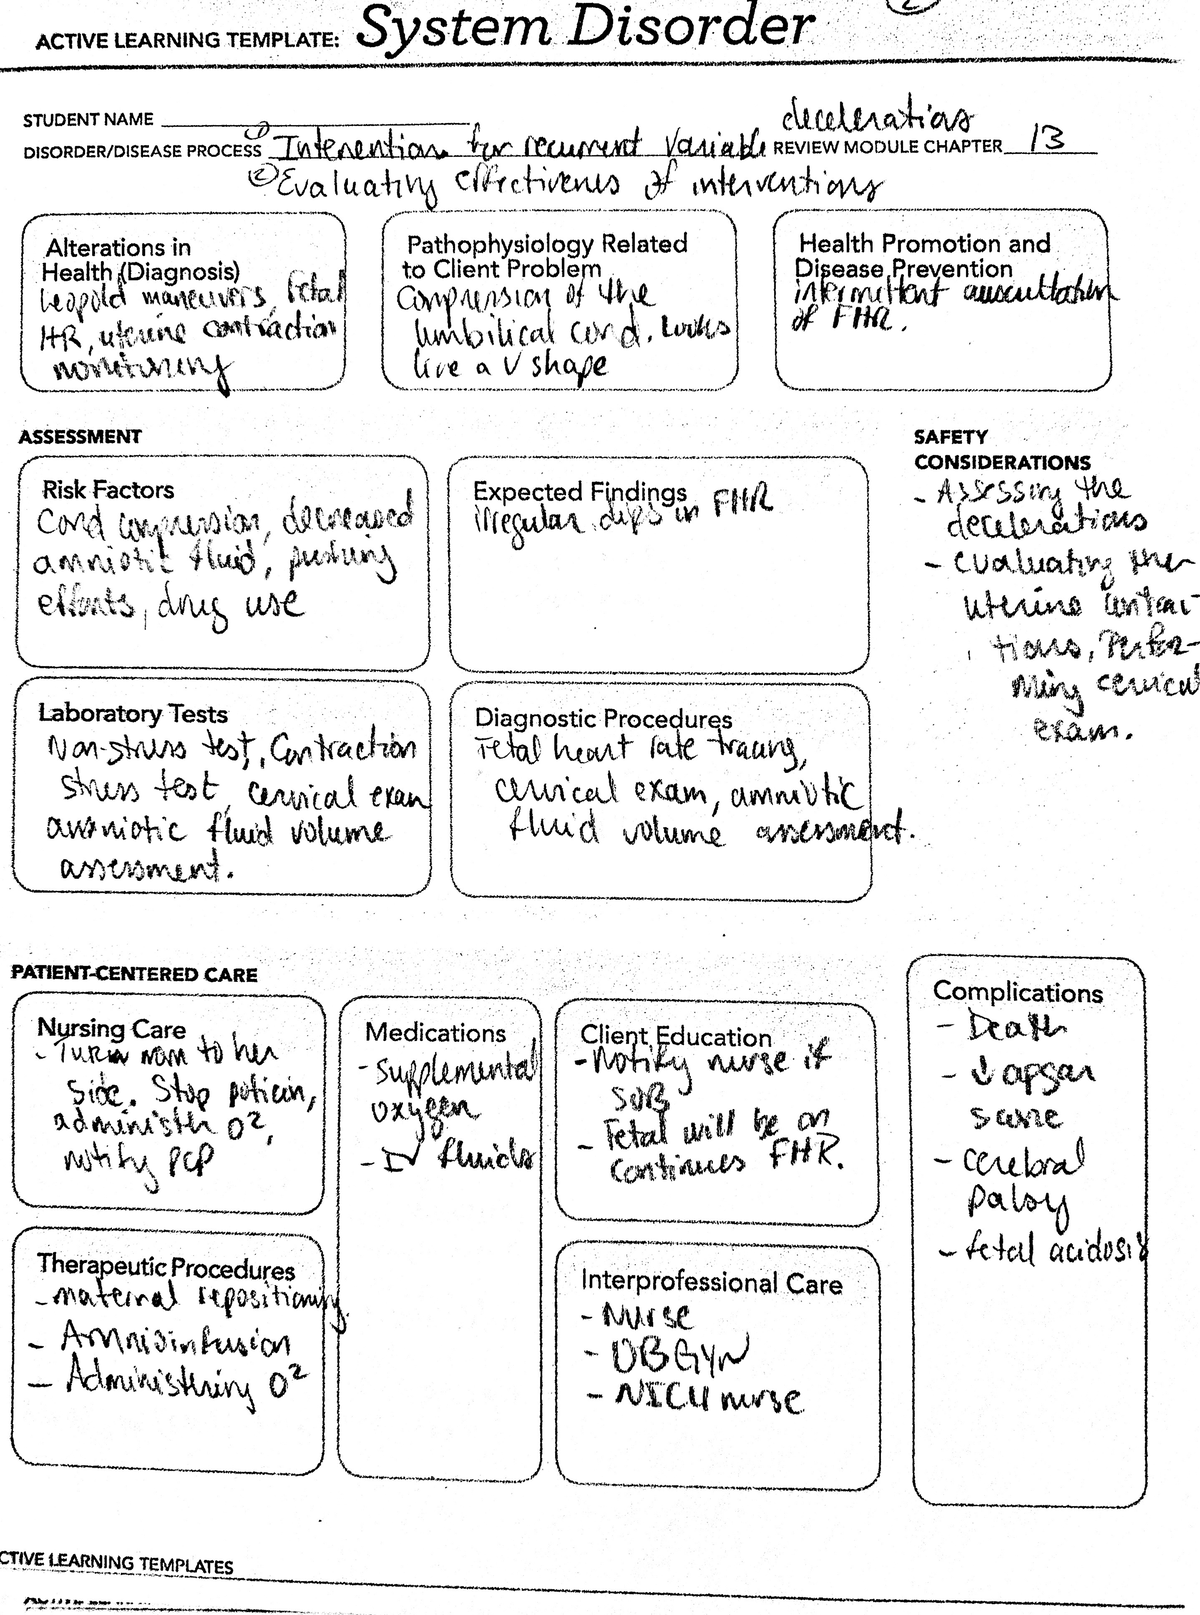 ACTIVE LEARNING TEMPLATE: System Disorder
2
STUDENT NAME
decelerations
DISORDER/DISEASE PROCESS ① Intervention for recurrent Variable REVIEW MODULE CHAPTER 13
② Evaluating effectiveness of interventions
Alterations in
Health (Diagnosis)
Leopold maneuvers, fetal
HR, uterine contraction
monitoring
Pathophysiology Related
to Client Problem
Compression of the
umbilical cord. Looks
like a V shape
Health Promotion and
Disease Prevention
intermittent auscultation
of FHR.
ASSESSMENT
Risk Factors
Cord compression, decreased
amniotic fluid, pushing
efforts, drug use
Expected Findings
irregular dips in FHR
SAFETY
CONSIDERATIONS
- Assessing the
decelerations
- evaluating the
uterine contrac-
tions, Perfor-
ming cervical
exam.
Laboratory Tests
Non-stress test, Contraction
stress test, cervical exam
amniotic fluid volume
assessment.
Diagnostic Procedures
Fetal heart rate tracing,
cervical exam, amniotic
fluid volume assessment.
PATIENT-CENTERED CARE
Nursing Care
- Turn mom to her
side. Stop pitocin,
administer O²,
notify PCP
Medications
- Supplemental
oxygen
- IV fluids
Client Education
- Notify nurse if
SOB
- Fetal will be on
continues FHR.
Complications
- Death
- ↓ apgar
score
- cerebral
palsy
- fetal acidosis
Therapeutic Procedures
- maternal repositioning.
- Amnioinfusion
- Administering O²
Interprofessional Care
- Nurse
- OBGYN
- NICU nurse
CTIVE LEARNING TEMPLATES